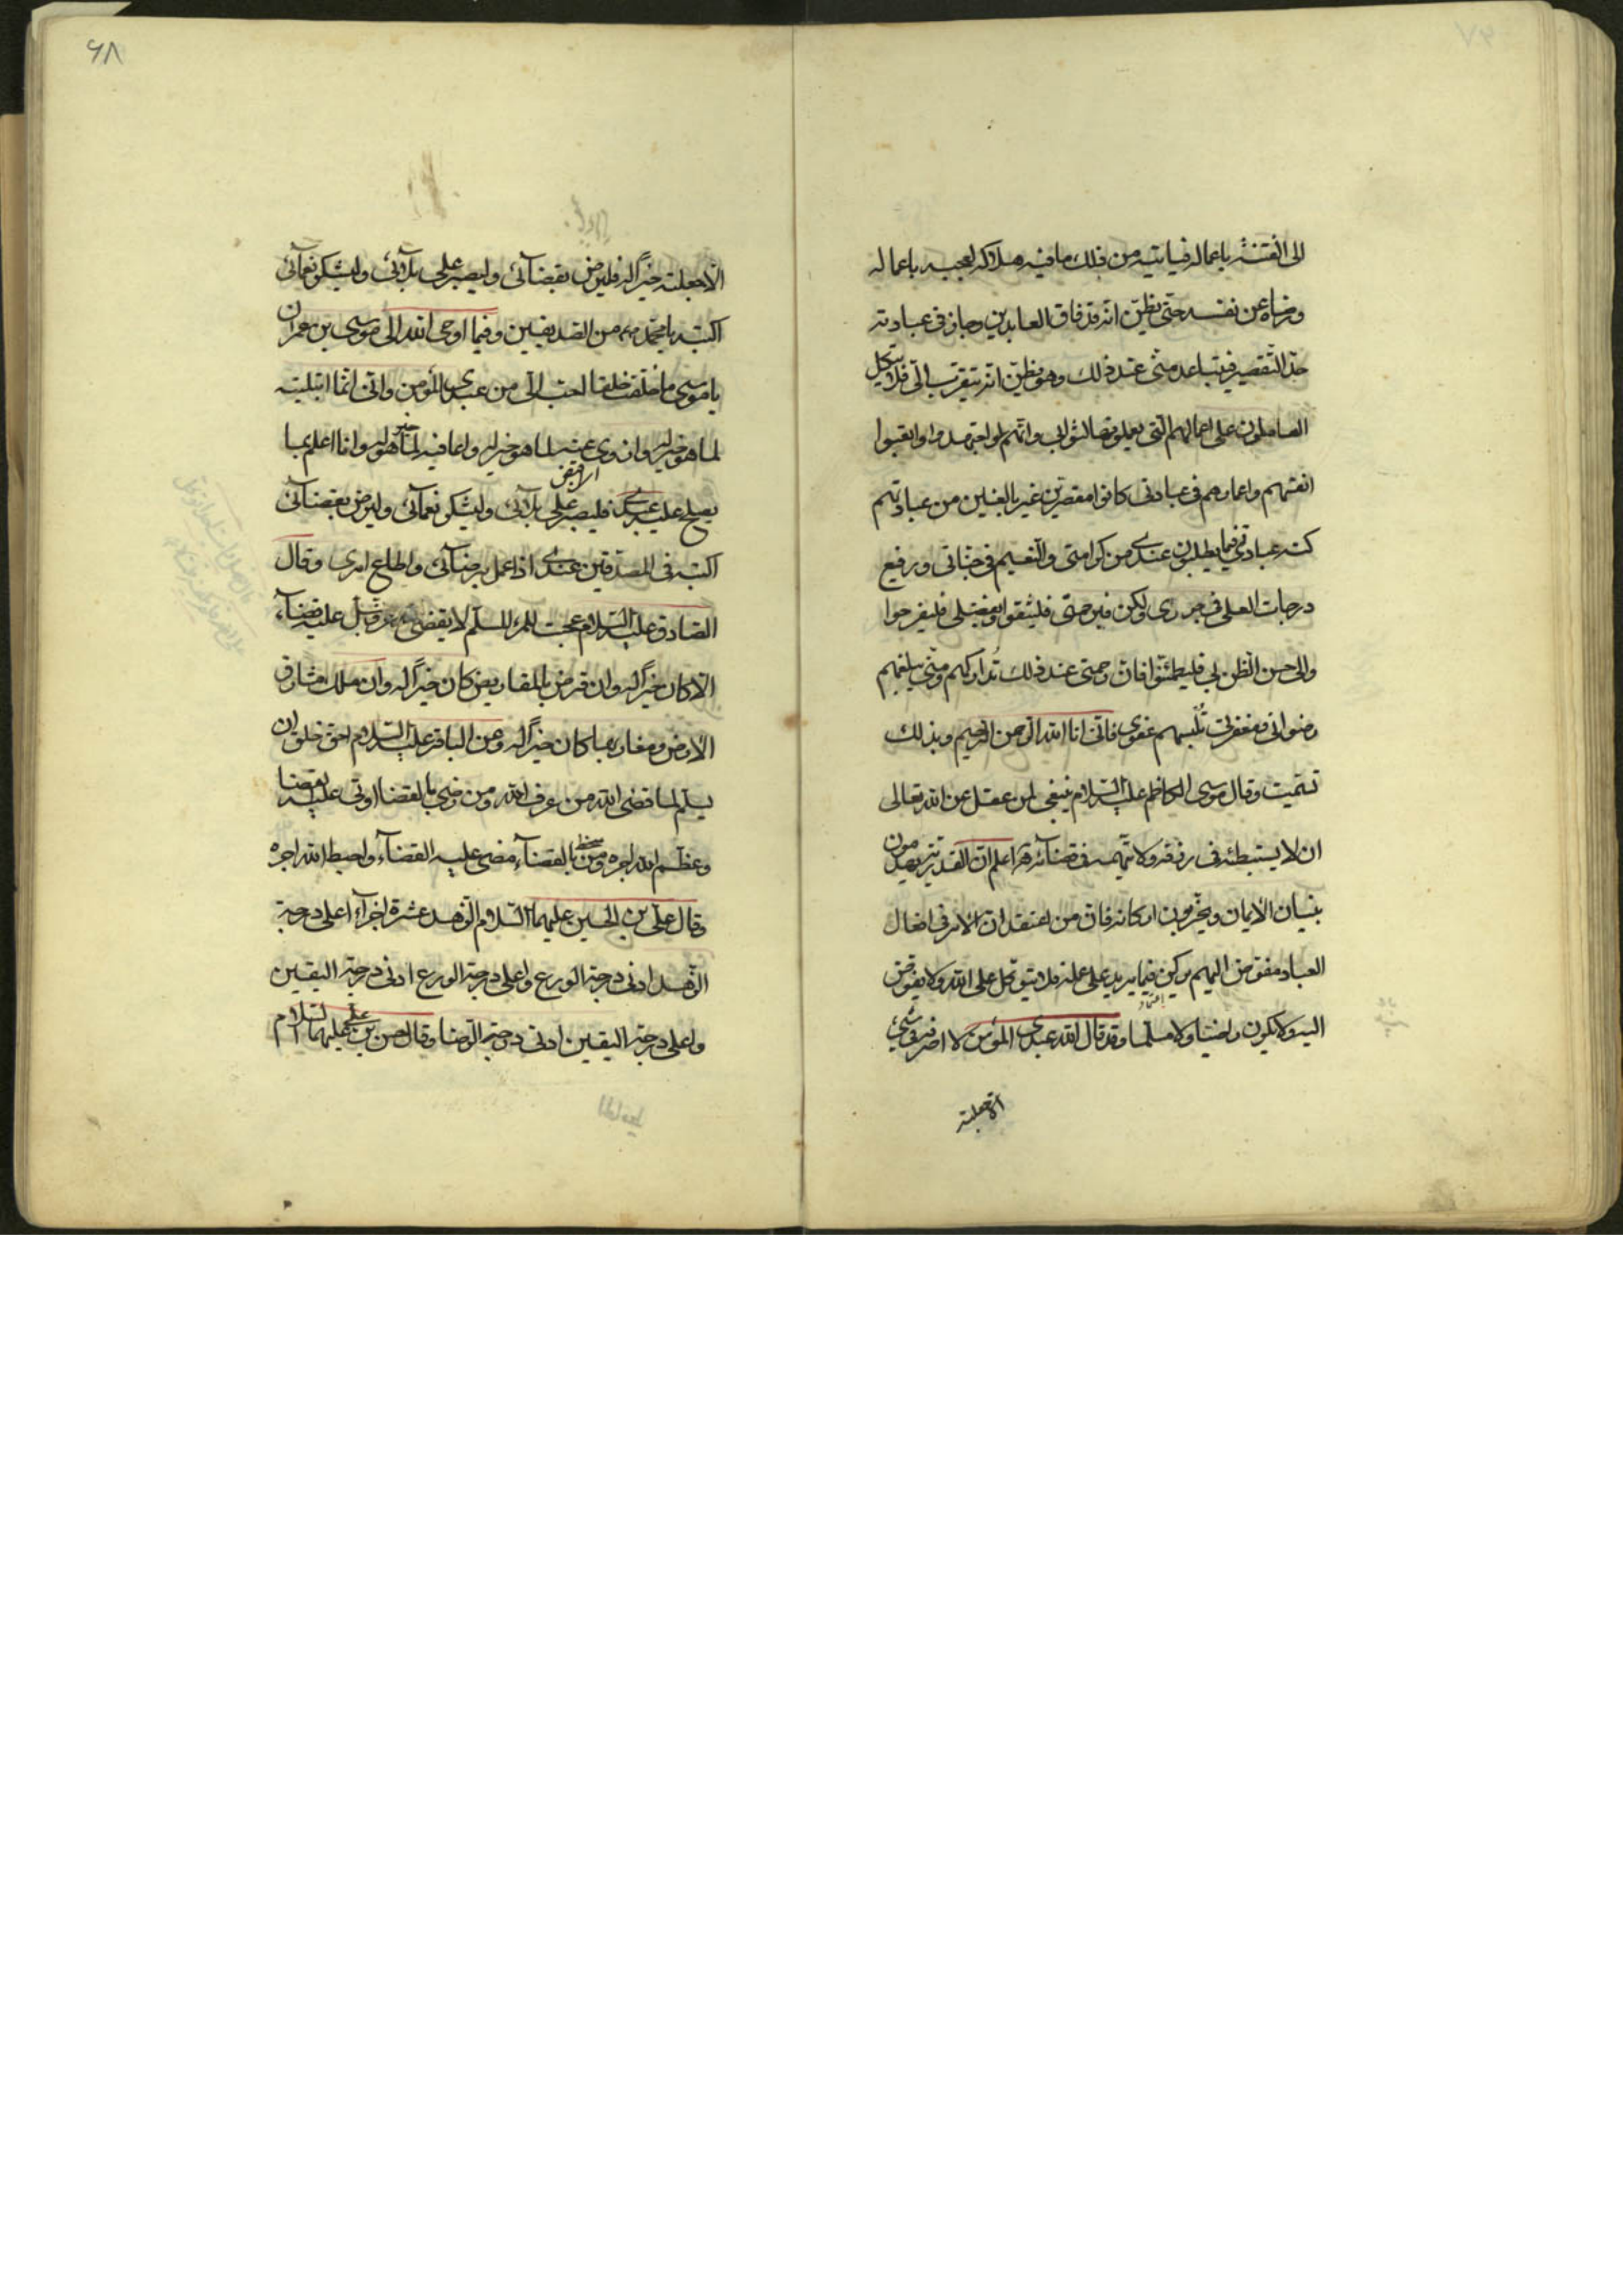 الى الفتنة باعماله فياتيه من ذلك ما فيه هلاكه لعجبه باعماله
ورضاه عن نفسه حتى يظن انه قد فاق العابدين وجاز في عبادته
حد التقصير فيتباعد منى عند ذلك وهو يظن انه يتقرب الى فلا يتكل
العاملون على اعمالهم التى يعملونها لثوابى وانهم لو اجتهدوا واتعبوا
انفسهم واعمارهم فى عبادتى كانوا مقصرين غير بالغين من عبادتهم
كنه عبادتى فيما يطلبون عندى من كرامتى والنعيم فى جناتى ورفيع
درجات العلى فى جوارى ولكن فبرحمتى فليثقوا وبفضلى فليفرحوا
والى حسن الظن بى فليطمئنوا فان رحمتى عند ذلك تداركهم ومنى يبلغهم
رضوانى ومغفرتى تلبسهم عفوى فانى انا الله الرحمن الرحيم وبذلك
تسميت وقال موسى الكاظم عليه السلام ينبغى لمن عقل عن الله تعالى
ان لا يستبطئه فى رزقه ولا يتهمه فى قضائه ثم اعلم ان القدرية يهدمون
بنيان الايمان ويخربون اركانه فان من اعتقد ان الامر فى افعال
العباد مفوض اليهم يركن فيما يريد على عمله فلا يتوكل على الله ولا يفوض
اليه ولا يكون راضيا ولا مسلما وقد قال الله عبدى المؤمن لا اصرفه فى شئ
الا جعلته
۶۸
الا جعلته خيرا له فليرض بقضآئى وليصبر على بلآئى وليشكر نعمآئى
اكتبه يا محمد من الصديقين وفيما اوحى الله الى موسى بن عمران
يا موسى ما خلقت خلقا احب الى من عبدى المؤمن وانى انما ابتليته
لما هو خير له وازوى عنه لما هو خير له واعافيه لما هو خير له وانا اعلم بما
يصلح عليه عبدى فليصبر على بلآئى وليشكر نعمآئى وليرض بقضآئى
اكتبه فى الصديقين عندى اذا عمل برضآئى واطاع امرى وقال
الصادق عليه السلام عجبت للمرء المسلم لا يقضى الله عز وجل عليه قضآء
الا كان خيرا له وان قرض بالمقاريض كان خيرا له وان ملك مشارق
الارض ومغاربها كان خيرا له وعن الباقر عليه السلام احق خلق ان
يسلم لما قضى الله من عرف الله ومن رضى بالقضا اوتى عليه بقضا
وعظم الله اجره ومن سخط بالقضآء مضى عليه القضآء واحبط الله اجره
وقال على بن الحسين عليهما السلام الزهد عشرة اجزآء اعلى درجة
الزهد ادنى درجة الورع واعلى درجة الورع ادنى درجة اليقين
واعلى درجة اليقين ادنى درجة الرضا وقال حسن بن على عليهما السلام